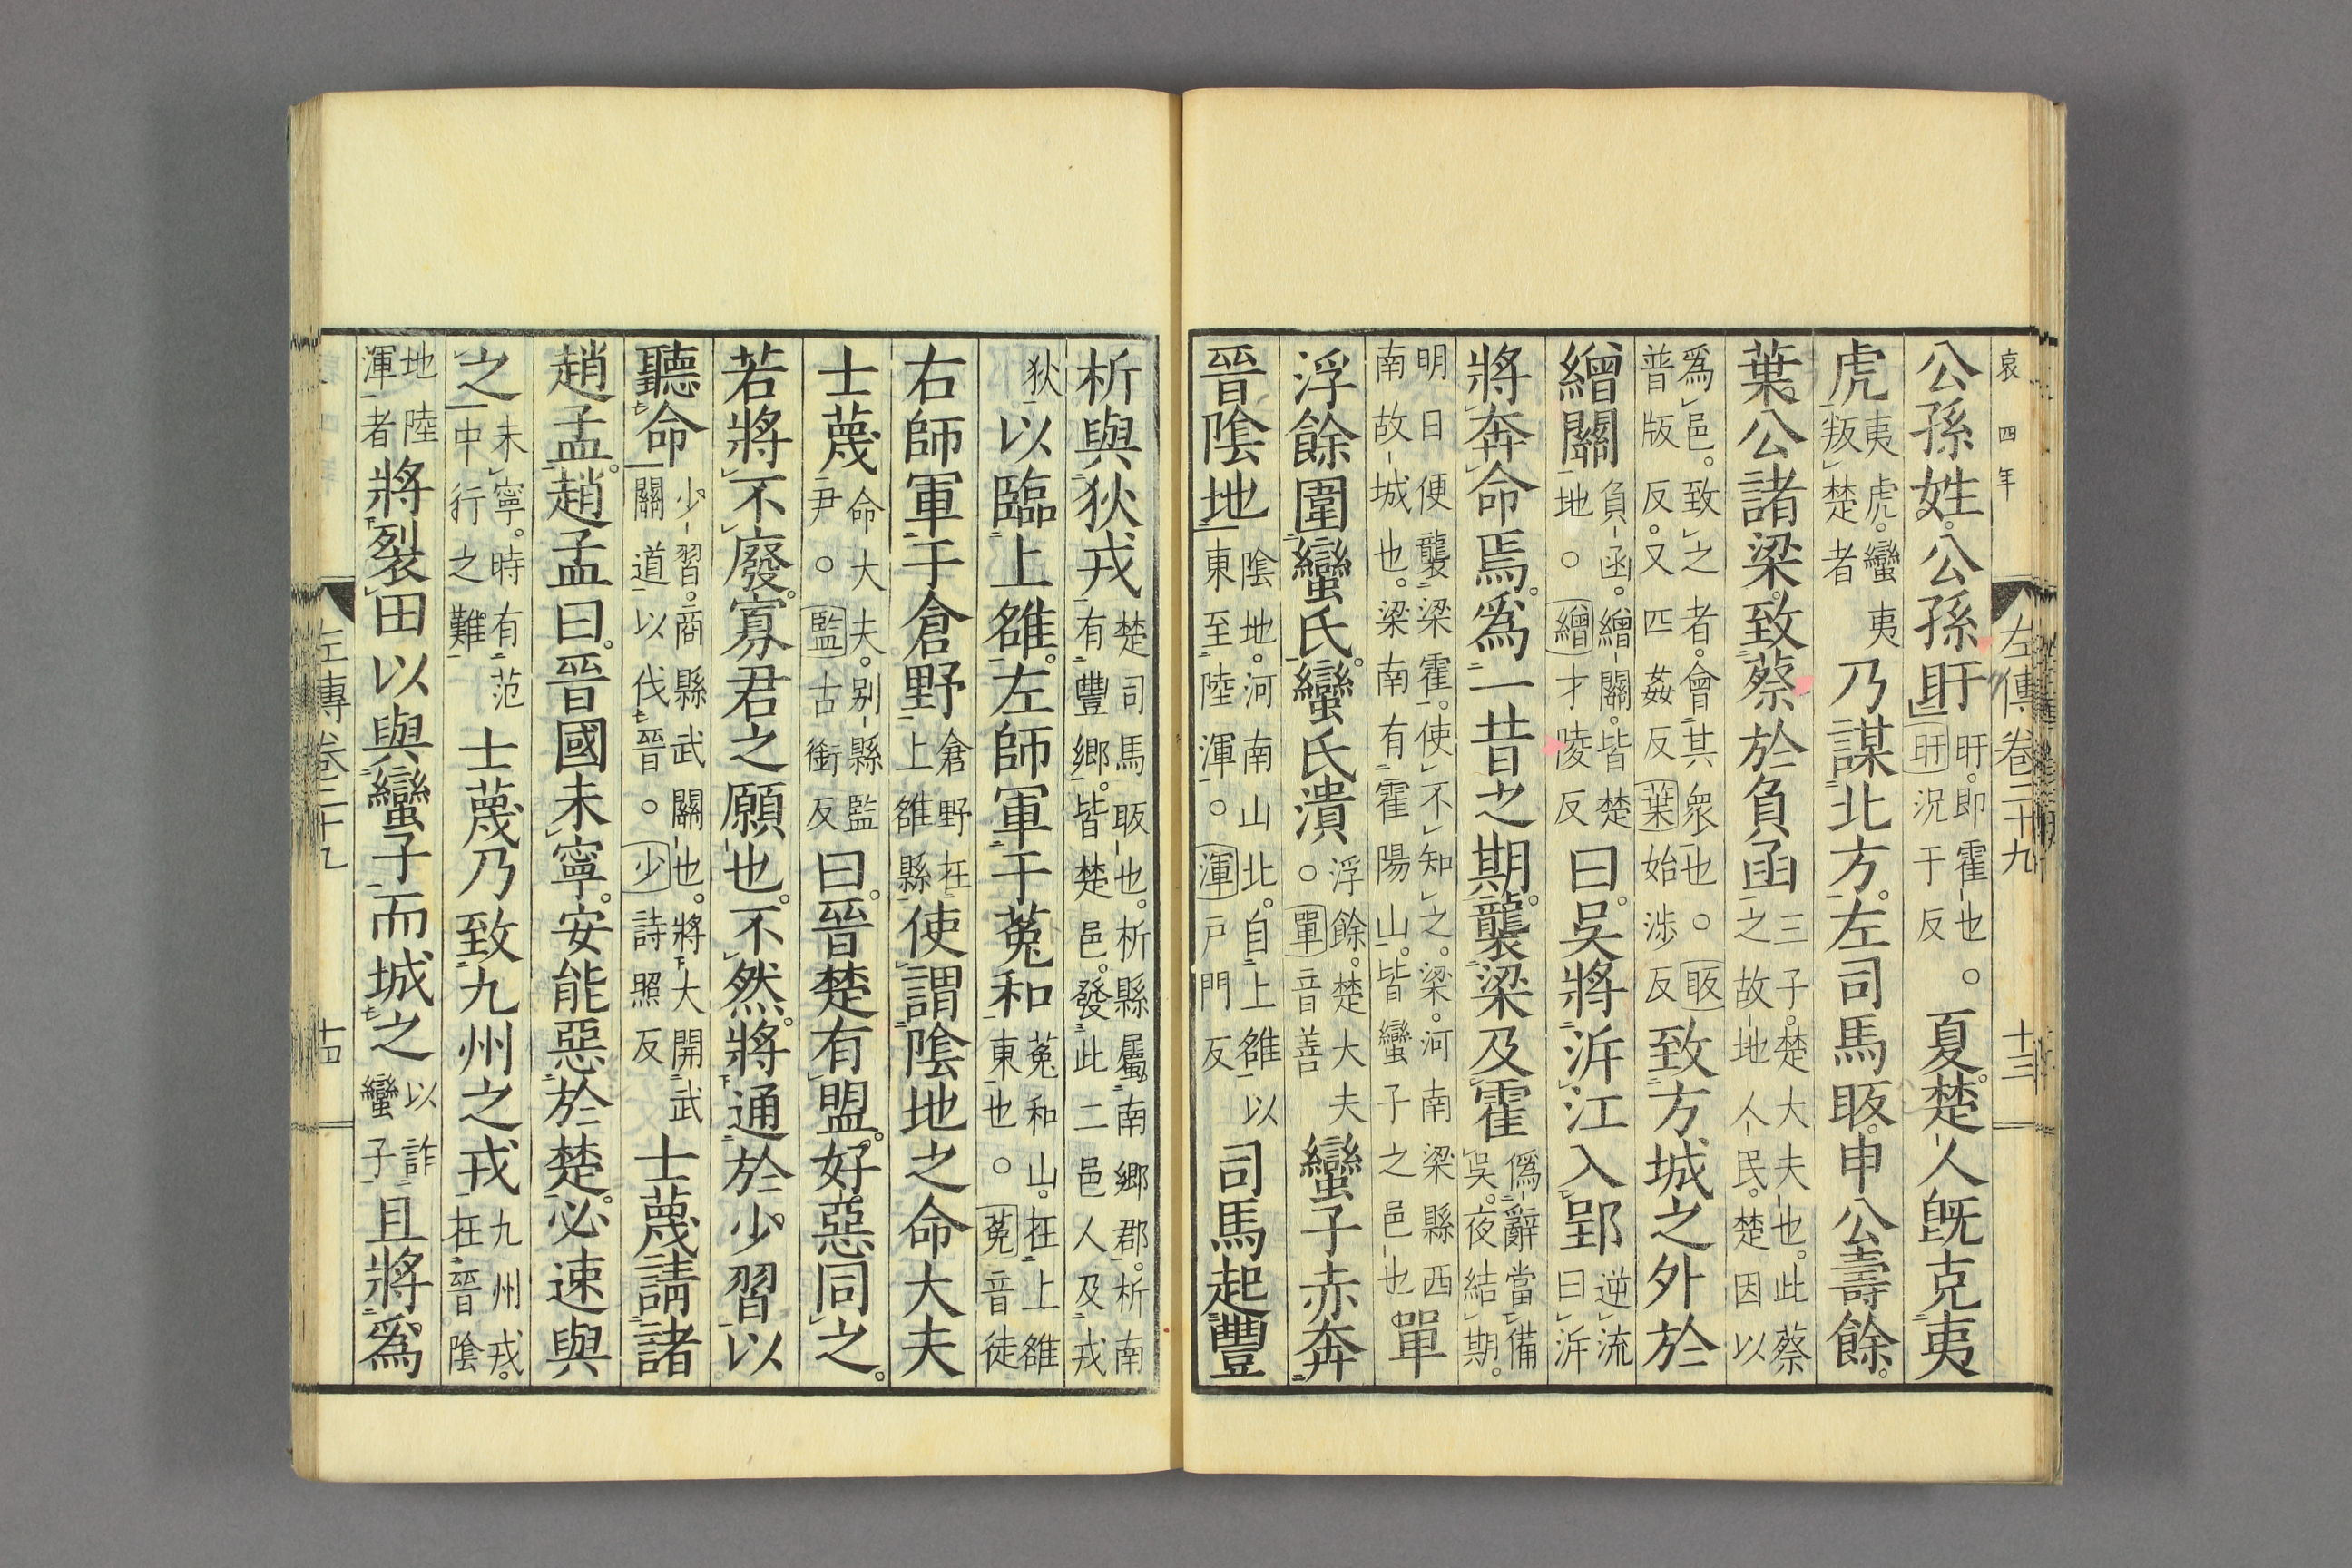 哀四年
左傳卷二十九 十三
公孫姓公孫盱盱即霍也○盱況于反夏楚人既克夷
虎夷虎蠻夷叛楚者乃謀北方左司馬眅申公壽餘
葉公諸梁致蔡於負函三子楚大夫也此蔡之故地人民楚因以
爲邑致之者會其衆也○眅普版反又匹姦反葉始涉反致方城之外於
繒關負函繒關皆楚地○繒才陵反曰吳將泝江入郢逆流曰泝
將奔命焉爲一昔之期襲梁及霍僞辭當備吳夜結期
明日便襲梁霍使不知之梁河南梁縣西南故城也梁南有霍陽山皆蠻子之邑也單
浮餘圍蠻氏蠻氏潰浮餘楚大夫○單音善蠻子赤奔
晉陰地陰地河南山北自上雒以東至陸渾○渾戶門反司馬起豐
析與狄戎楚司馬眅也析縣屬南鄉郡析南有豐鄉皆楚邑發此二邑人及戎
狄以臨上雒左師軍于菟和菟和山在上雒東也○菟音徒
右師軍于倉野倉野在上雒縣使謂陰地之命大夫
士蔑命大夫別縣監尹○監古銜反曰晉楚有盟好惡同之
若將不廢寡君之願也不然將通於少習以
聽命少習商縣武關也將大開武關道以伐晉○少詩照反士蔑請諸
趙孟趙孟曰晉國未寧安能惡於楚必速與
之未寧時有范中行之難士蔑乃致九州之戎九州戎在晉陰
地陸渾者將裂田以與蠻子而城之以詐蠻子且將爲
左傳卷二十九 十四